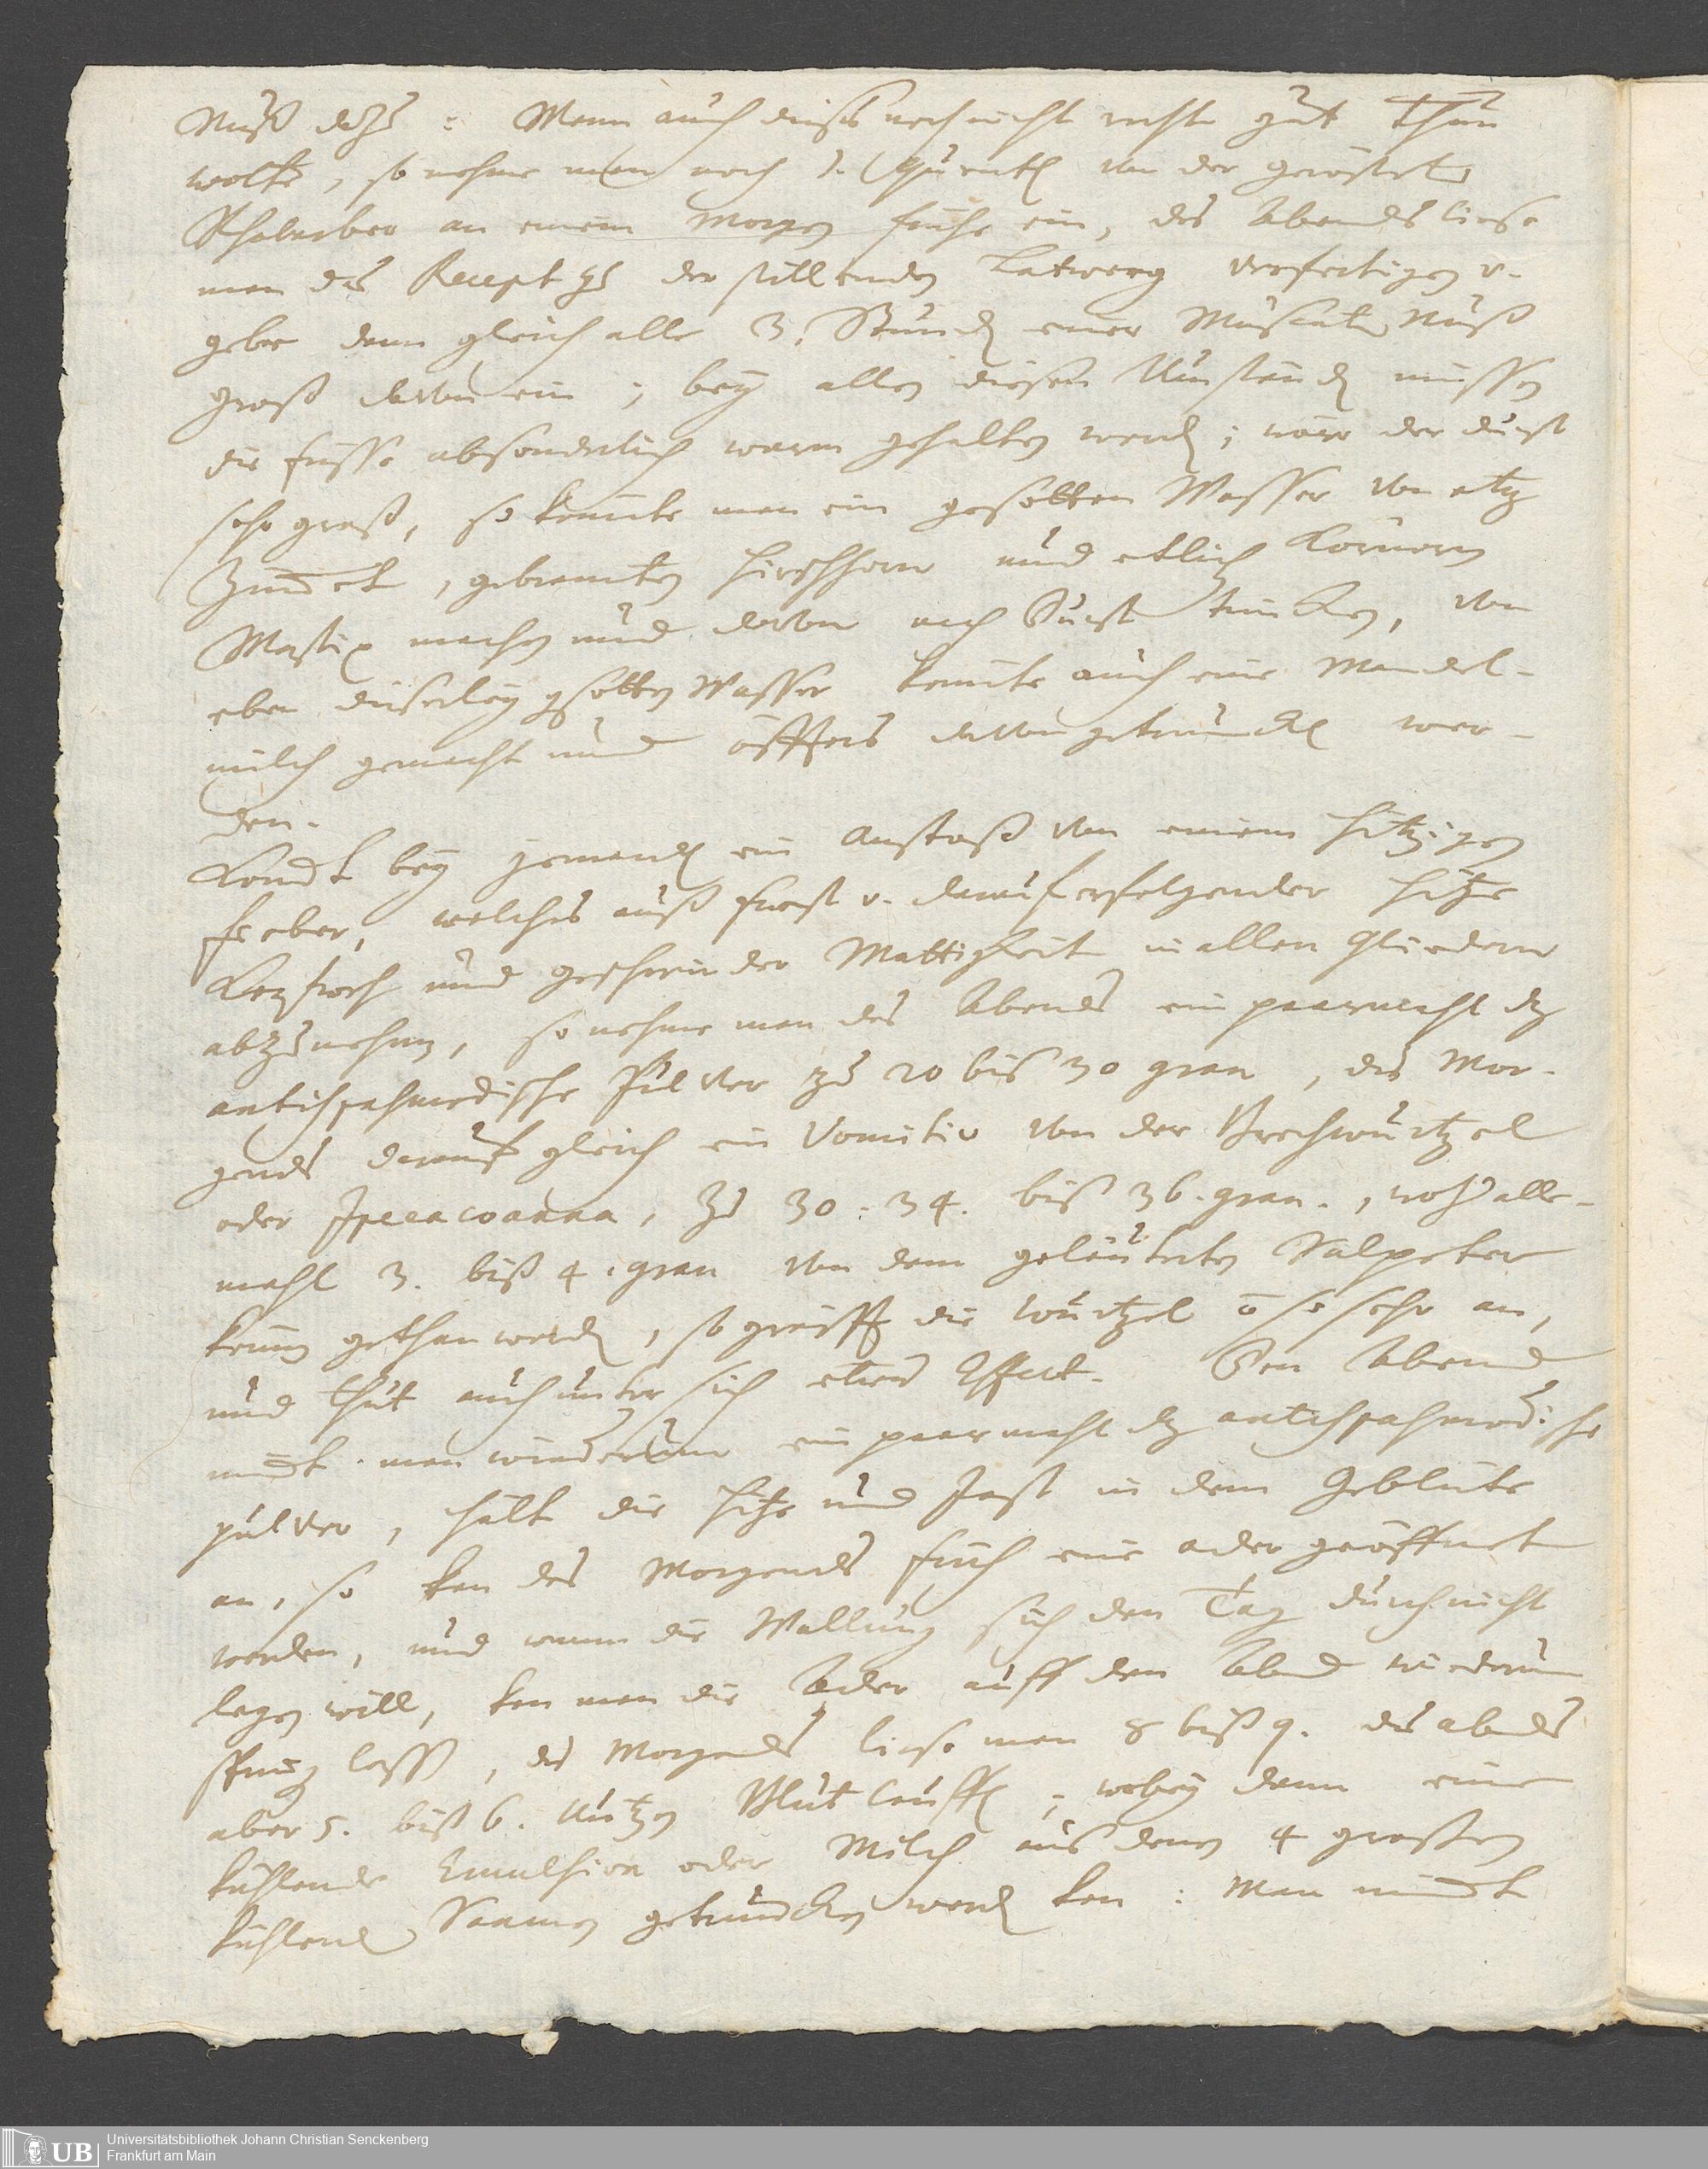 Nuß dazu: Wenn auch dieses noch nicht recht gut thun
wolte, so nehme man noch 1. Quentl von der gerösteten
Rhabarber an einem Morgen fruhe ein, des Abends liese
man das Recept zu der stillenden Latwerg verfertigen v.
gebe dann gleich alle 3. Stund einer Muscaten Nuß
groß davon ein; bey allen diesen Umständ müssen
die füsse absonderlich warm gehalten werd; wäre der durst
sehr groß, so könnte man ein gesotten Wasser von etwz
Zimmet, gebranten Hirschhorn und etlich Körnern
Mastix machen und davon nach Durst trincken, von
eben dieserley gesotten Wasser könnte auch eine Mandel-
milch gemacht und öffters davon getruncken wer-
den.
Komt bey jemand ein Anstoß von einem hitzigen
fieber, welches auß frost v. darauf erfolgender Hitze
Kopfweh und geschwinder Mattigkeit in allen Gliedern
abzunehmen, so nehme man des Abends ein paarmahl dz
antispasmodische Pulver zu 20 bis 30 gran, des Mor-
gends darauf gleich ein Vomitiv von der Brechwurtzel
oder Ipecacoanna, zu 30: 34. biß 36. gran., wozu alle-
mahl 3. biß 4. gran von dem geläuterten Salpeter
kann gethan werd, so greifft die Wurtzel so sehr an,
und thut auch unter sich etwas Effect. Den Abend
nimt man wiederum ein paarmahl dz antispasmodische
pulver, hält die Hitze und Jast in dem Geblüte
an, so kan des Morgends früh eine ader geöffnet
werden, und wann die Wallung sich den Tag durch nicht
legen will, kan man die Ader auff den Abend wiederum
springen lassen, des Morgends liese man 8 biß 9. des abends
aber 5. biß 6. Untzen Blut lauffen; wobey dann eine
kühlende Emulsion oder Milch aus denen 4 grossen
kühlend Saamen getruncken werd kan: Man nimmt
Universitätsbibliothek Johann Christian Senckenberg
Frankfurt am Main
UB